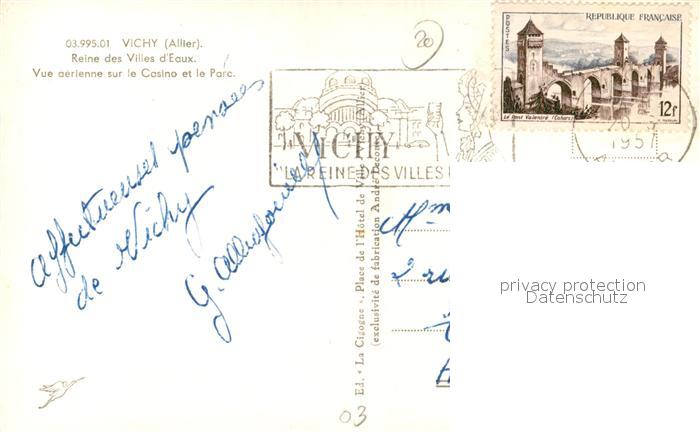 03.995.01 VICHY (Allier).
Reine des Villes d'Eaux.
Vue aérienne sur le Casino et le Parc.
20
POSTES
REPUBLIQUE FRANÇAISE
Le Pont Valentré (Cahors)
12F
1957
VICHY
"LA REINE DES VILLES
Affectueuses pensées
de Vichy
G.
Ed. « La Cigogne ». Place de l'Hôtel de Ville Vichy (Allier)
(exclusivité de fabrication André Leconte)
Mme
2 ru
privacy protection
Datenschutz
03